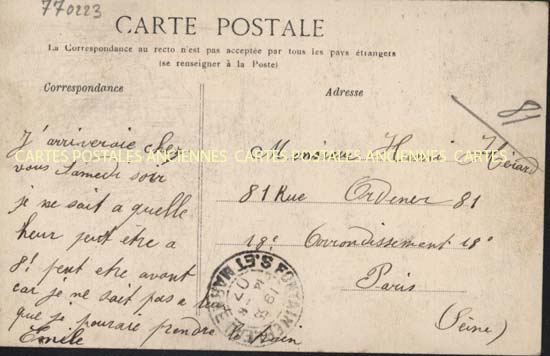 770223
CARTE POSTALE
La Correspondance au recto n'est pas acceptée par tous les pays étrangers
(se renseigner à la Poste)
Correspondance
Adresse
J'arriveraie chez
vous Samedi soir
je ne sait a quelle
heur peut etre a
8! peut etre avant
car je ne sait pas a
que je pouraie prendre le train
Emile
81
Monsieur Henri
81 Rue Ordener 81
18e Arrondissement 18e
Paris
(Seine)
FONTAINEBLEAU S. ET MARNE
CARTES POSTALES ANCIENNES CARTES POSTALES ANCIENNES CARTES